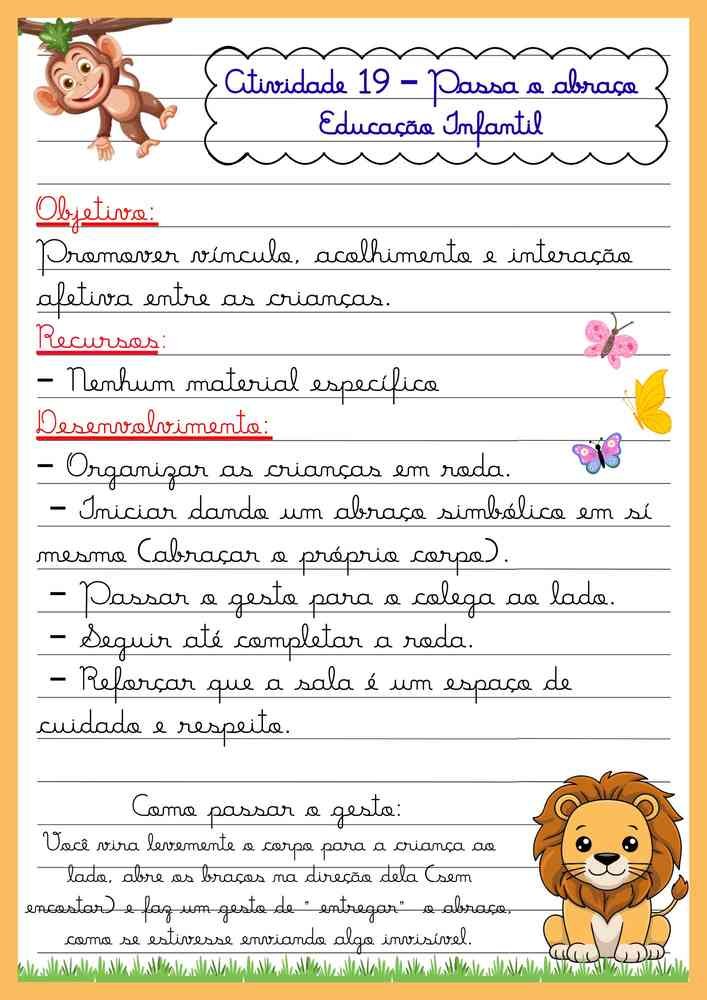 Atividade 19 - Passa o abraço
Educação Infantil
Objetivo:
Promover vínculo, acolhimento e interação
afetiva entre as crianças.
Recursos:
- Nenhum material específico
Desenvolvimento:
- Organizar as crianças em roda.
- Iniciar dando um abraço simbólico em sí
mesmo (abraçar o próprio corpo).
- Passar o gesto para o colega ao lado.
- Seguir até completar a roda.
- Reforçar que a sala é um espaço de
cuidado e respeito.
Como passar o gesto:
Você vira levemente o corpo para a criança ao
lado, abre os braços na direção dela (sem
encostar) e faz um gesto de " entregar" o abraço,
como se estivesse enviando algo invisível.